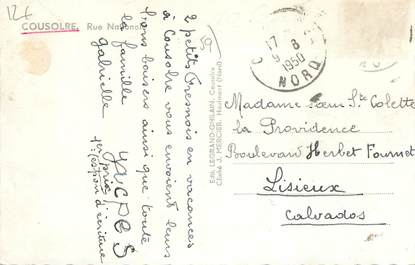 12f
COUSOLRE. Rue National
2 petits Fresnois en vacances
à Cousolre vous envoient leurs
bons baisers ainsi que toute
la famille
Gabrielle
YACPES
1er
1ère leçon d'écriture
Edit. LEGRAND-GHILAIN, Cousolre
Cliché J. MERCIER, Hautmont (Nord)
17
9 8
1950
NORD
Madame Sœur Ste Colette
la Providence
Boulevard Herbet Fournet
Lisieux
Calvados